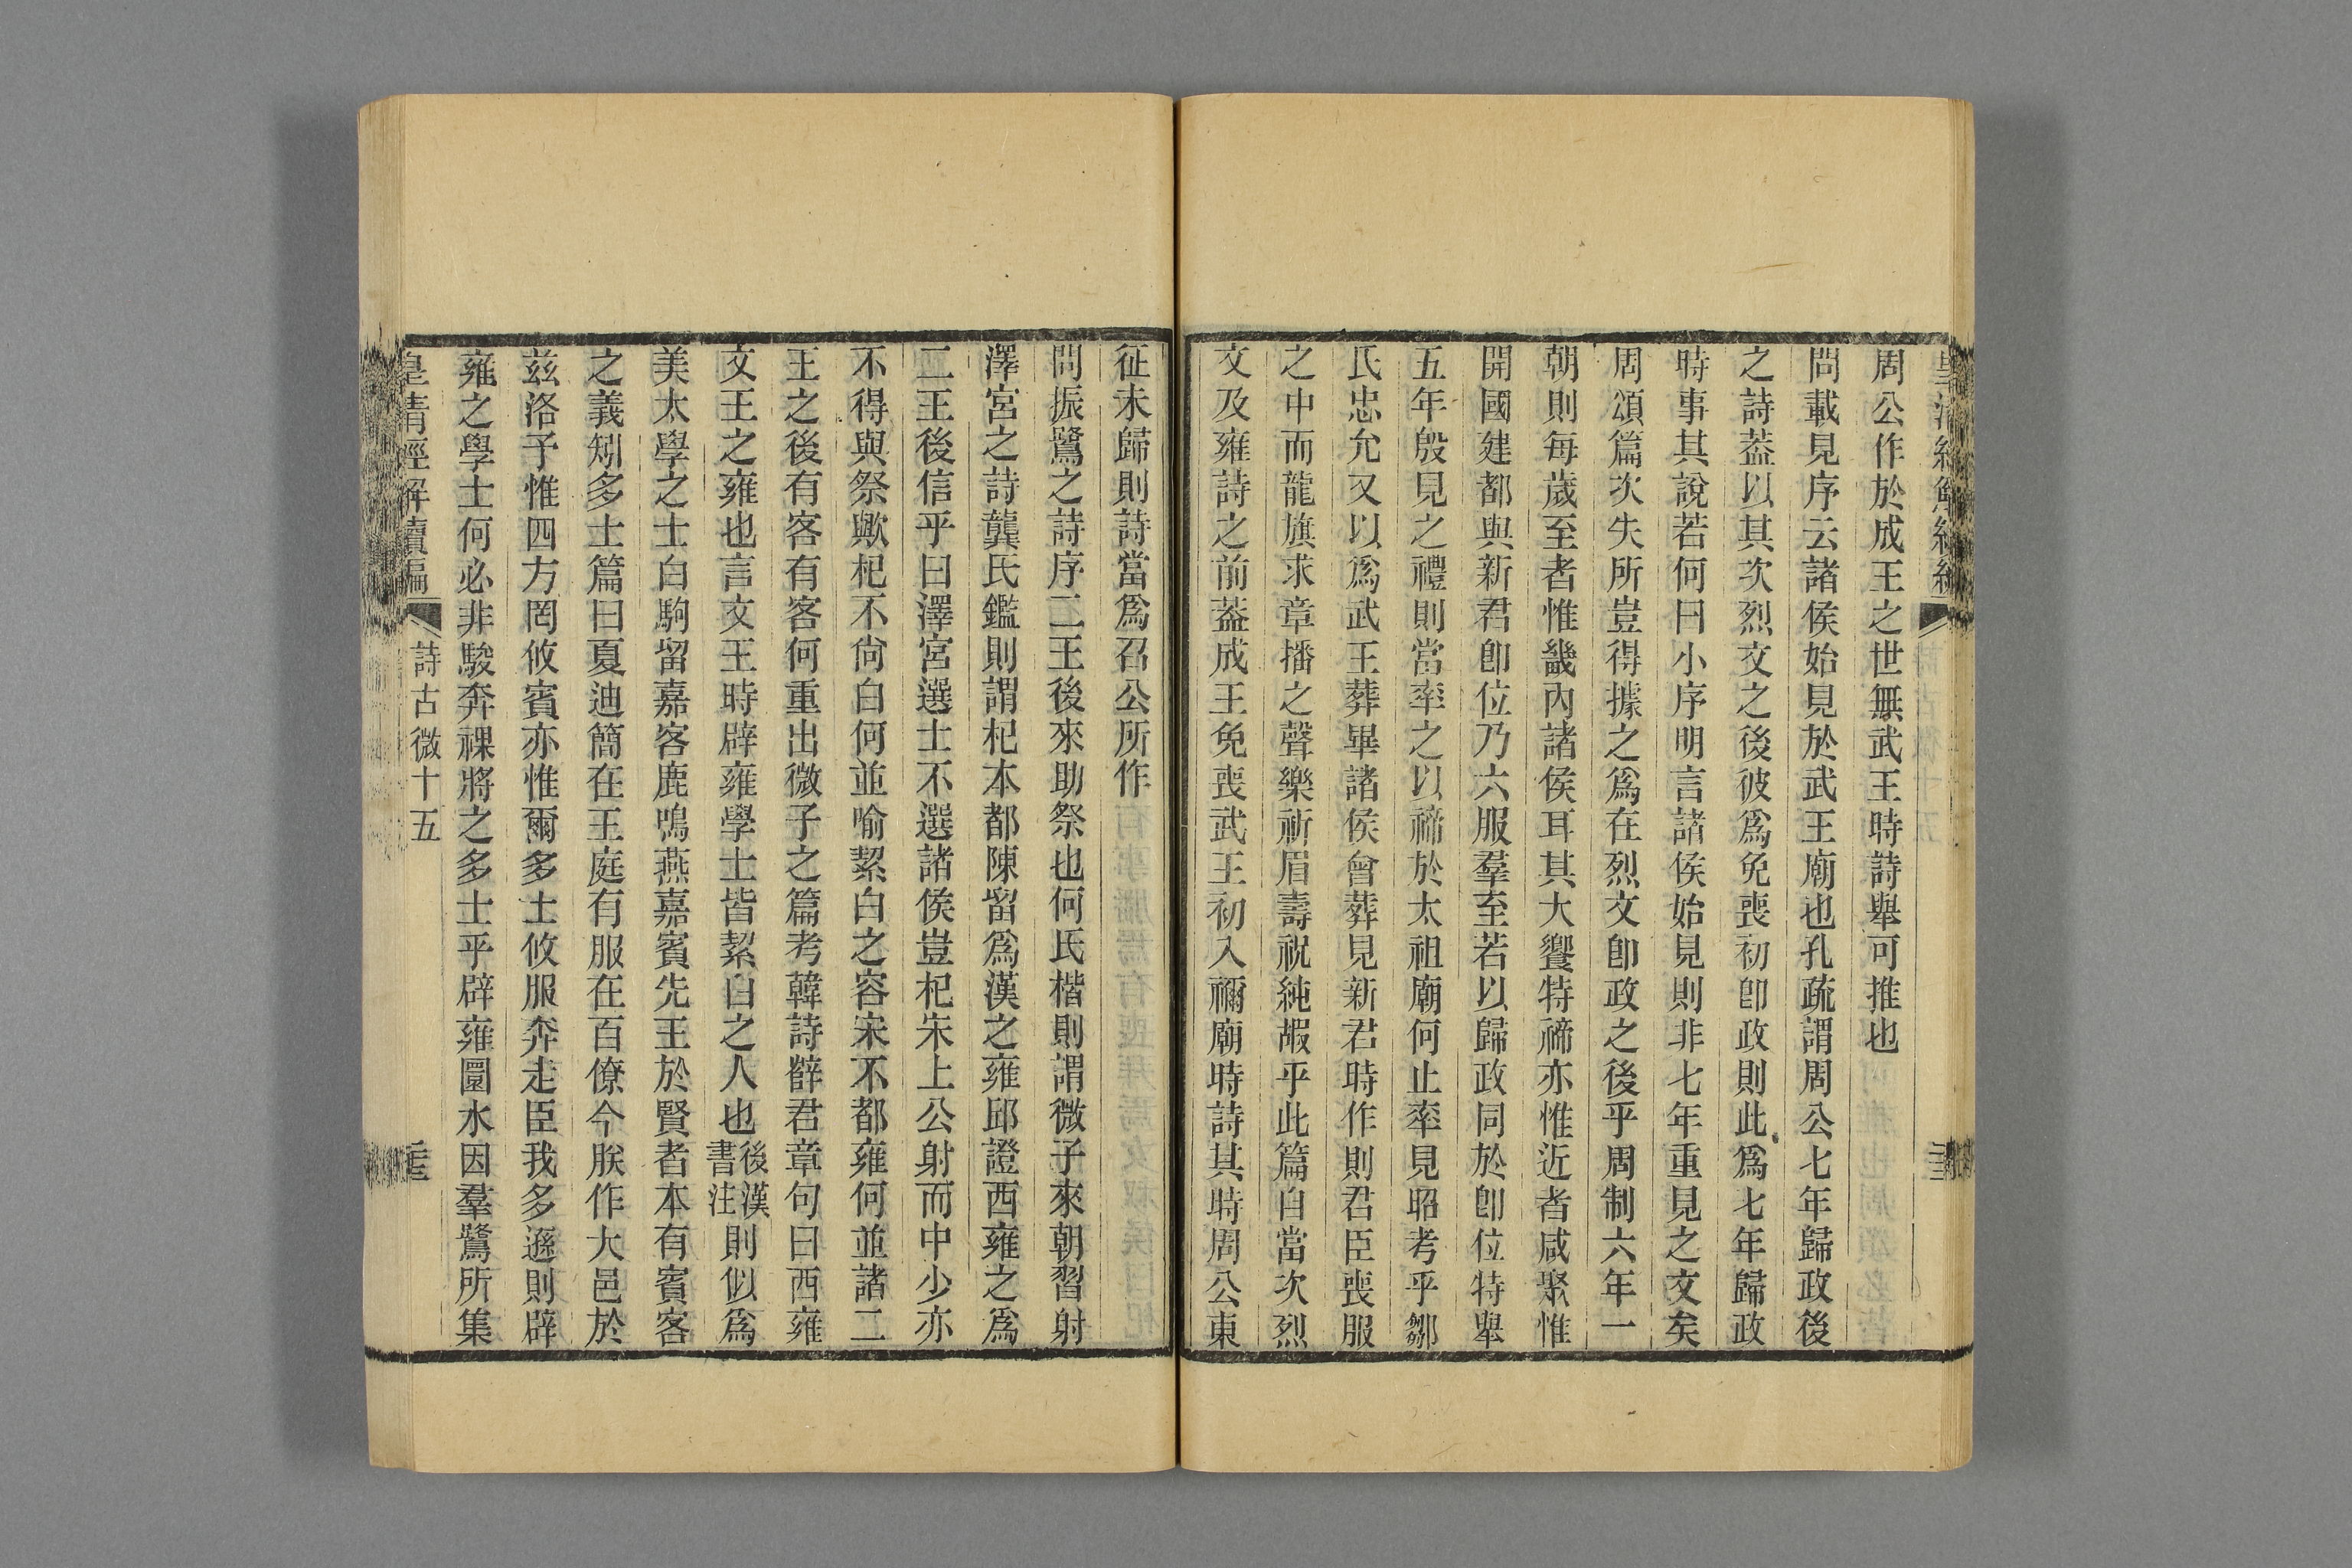 周公作於成王之世無武王時詩舉可推也
問載見序云諸侯始見於武王廟也孔疏謂周公七年歸政後
之詩葢以其次烈文之後彼爲免喪初卽政則此爲七年歸政
時事其說若何曰小序明言諸侯始見則非七年重見之文矣
周頌篇次失所豈得據之爲在烈文卽政之後乎周制六年一
朝則每歲至者惟畿內諸侯耳其大饗特禘亦惟近者咸聚惟
開國建都與新君卽位乃六服羣至若以歸政同於卽位特舉
五年殷見之禮則當率之以禘於太祖廟何止率見昭考乎鄒
氏忠允又以爲武王葬畢諸侯會葬見新君時作則君臣喪服
之中而龍旗求章播之聲樂祈眉壽祝純嘏乎此篇自當次烈
文及雍詩之前葢成王免喪武王初入禰廟時詩其時周公東
征未歸則詩當爲召公所作
問振鷺之詩序二王後來助祭也何氏楷則謂微子來朝習射
澤宮之詩龔氏鑑則謂杞本都陳留爲漢之雍邱證西雍之爲
二王後信乎曰澤宮選士不選諸侯豈杞宋上公射而中少亦
不得與祭歟杞不尙白何並喻絜白之容宋不都雍何並諸二
王之後有客有客何重出微子之篇考韓詩辥君章句曰西雍
文王之雍也言文王時辟雍學士皆絜白之人也後漢書注則似爲
美太學之士白駒留嘉客鹿鳴燕嘉賓先王於賢者本有賓客
之義矧多士篇曰夏迪簡在王庭有服在百僚今朕作大邑於
茲洛予惟四方罔攸賓亦惟爾多士攸服奔走臣我多遜則辟
雍之學士何必非駿奔祼將之多士乎辟雍圜水因羣鷺所集
皇清經解續編
詩古微十五